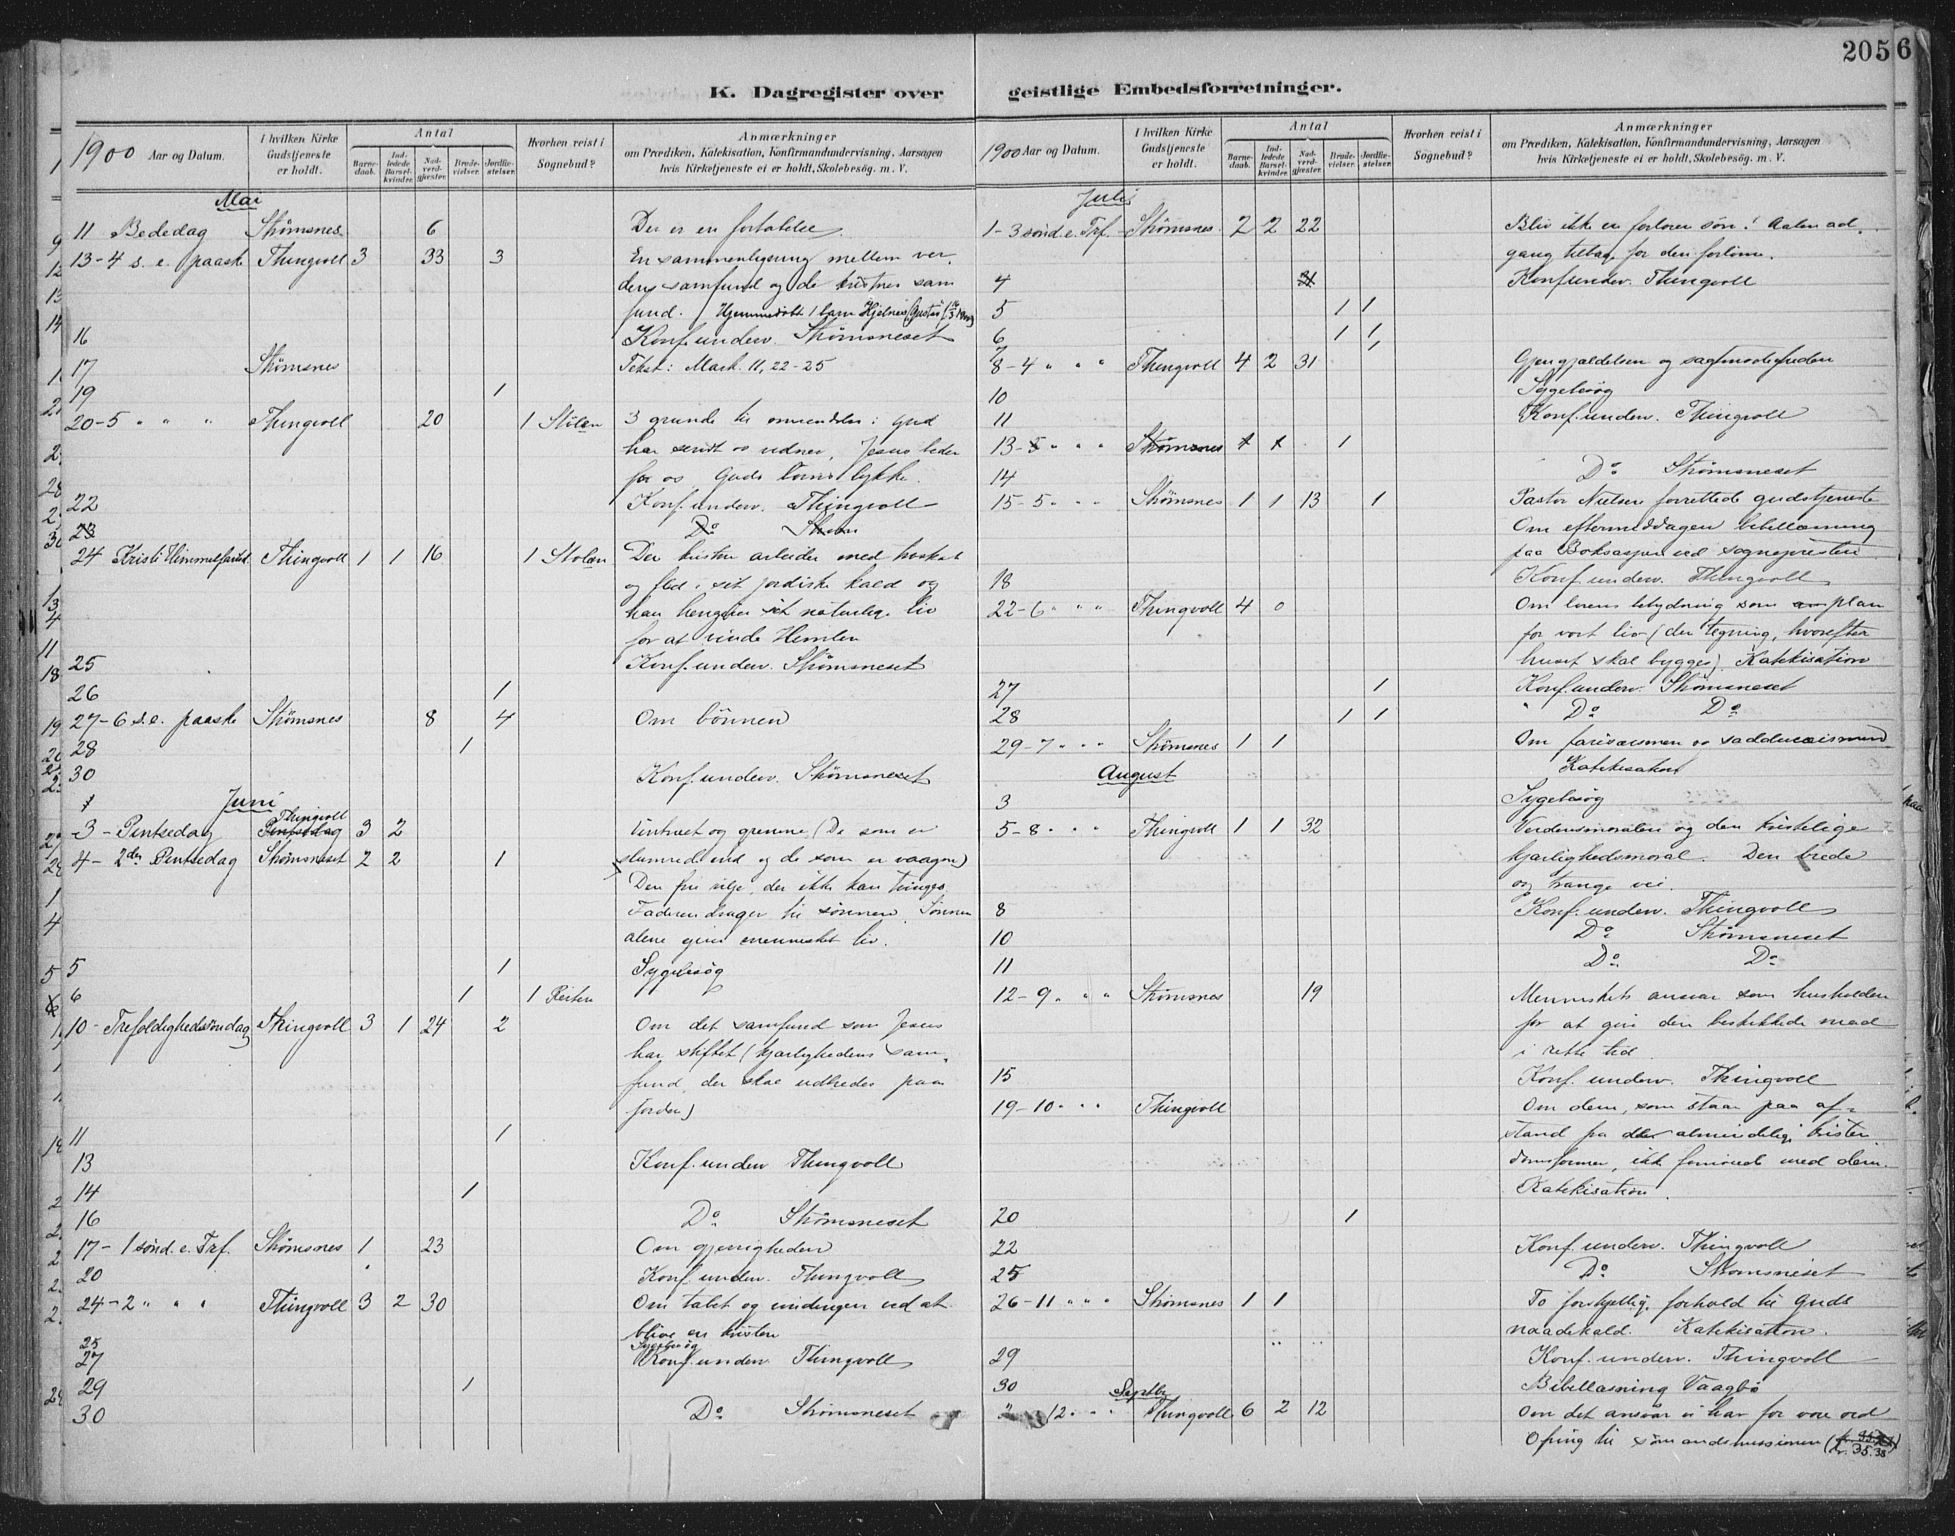 205 6
K. Dagregister over geistlige Embedsforretninger.
1900 Aar og Datum.
I hvilken Kirke Gudstjeneste er holdt.
Antal
Barne-daab.
Ind-ledede Barsel-kvinder.
Nad-verd-gjæster.
Brude-vielser.
Jordfæ-stelser.
Hvorhen reist i Sognebud?
Anmærkninger
om Prædiken, Katekisation, Konfirmandundervisning, Aarsagen
hvis Kirketjeneste ei er holdt, Skolebesøg. m. V.
Mai
11 Bededag Strømsnes 6 Der er en fortabelse.
13 - 4 s. e. paaske Thingvoll 3 33 3 En sammenligning mellem ver-
dens samfund og de kristnes sam
fund. / Hjemmedøbt 1 barn Hjelnes
16 Konf. underv. Strømsneset
17 Strømsnes Tekst: Mark. 11, 22-25
19 1
20 - 5 " " " Thingvoll 20 1 Stølen 3 grunde til omvendelse: Gud
har sendt os vidner, Jesus beder
for os, Guds
22 Konf. underv. Thingvoll
23 Do Strøm
24 Kristi Himmelfartsd. Thingvoll 1 1 16 1 Stolen Den kristne arbeider med
og flid i sit jordiske kald og
han hengiver sit naturlige liv
for at vinde Himlen
25 Konf. underv. Strømsneset
26 1
27 - 6 s. e. paaske Strømsnes 8 4 Om bønnen
28 1
30 Konf. underv. Strømsneset
Juni
1
3 - Pintsedag Thingvoll Pintsedag 3 2 Vintræet og grenene (De som er
4 - 2den Pintsedag Strømsneset 2 2 1 slumred ind og de som er vaagne)
Den frie vilje, der ikke kan tvinges,
Faderen drager til sønnen. Sønnen
alene giver mennesket liv.
5 1 Sygebesøg
6 1 1 Reiten
10 - Trefoldighedssøndag Thingvoll 3 1 24 2 Om det samfund som Jesus
har stiftet (kjærlighedens sam-
fund, der skal udbredes paa
jorden)
11 1
13 Konf. underv Thingvoll
14 1
16 Do Strømsneset
17 - 1 sønd. e. Tref. Strømsnes 1 23 Om gjerrigheden
20 Konf. underv. Thingvoll
24 - 2 " " " Thingvoll 3 2 30 Om tabet og vindingen ved at
blive en kristen
25 Sygebesøg
27 Konf. underv. Thingvoll
29 1
30 Do Strømsneset
1900 Aar og Datum.
I hvilken Kirke Gudstjeneste er holdt.
Antal
Barne-daab.
Ind-ledede Barsel-kvinder.
Nad-verd-gjæster.
Brude-vielser.
Jordfæ-stelser.
Hvorhen reist i Sognebud?
Anmærkninger
om Prædiken, Katekisation, Konfirmandundervisning, Aarsagen
hvis Kirketjeneste ei er holdt, Skolebesøg. m. V.
Juli
1 - 3 sønd. e. Tref. Strømsnes 2 2 22 Bliv ikke en fortoren søn! Aaben ad-
gang tilbage for den fortorne.
4 31 Konf. underv. Thingvoll
5 1 1
6 1 1
7 1
8 - 4 " " " Thingvoll 4 2 31 Gjengjældelsen og sagtmodigheden
10 Sygebesøg
11 Konf. underv. Thingvoll
13 - 5 " " " Strømsnes 1 1 1
14 Do Strømsneset
15 - 5 " " Strømsnes 1 1 13 1 Pastor Nielsen forrettede gudstjeneste
Om eftermiddagen bibellæsning
paa Boksaspen ved sognepresten
18 Konf. underv. Thingvoll
22 - 6 " " " Thingvoll 4 0 Om lovens betydning som plan
for vort liv (den tegning, hvorefter
huset skal bygges). Katekisation
27 1 Konf. underv. Strømsneset
28 1 1 " Do Do
29 - 7 " " " Strømsnes 1 1 Om farisæismen og sadducæismen
Katekisation
August
3 Sygebesøg
5 - 8 " " " Thingvoll 1 1 32 Verdensmoralen og den kristelige
kjærlighedsmoral. Den brede
og trange vei.
8 Konf. underv. Thingvoll
10 Do Strømsneset
11 Do Do
12 - 9 " " " Strømsnes 19 Menneskets ansvar som husholder
for at give den beskikkede mad
i rette tid
15 Konf. underv. Thingvoll
19 - 10 " " " Thingvoll Om dem, som staar paa af-
stand fra den almindelige kristen
domsformer, ikke fornøiede med dem.
Katekisation.
20 1
22 Konf. underv. Thingvoll
25 Do Strømsneset
26 - 11 " " " Strømsnes 1 1 To forskjellige forhold til Guds
naadekald. Katekisation.
29 Konf. underv. Thingvoll
30 Bibellæsning Vaagbø
Septbr
2 12 " " " Thingvoll 6 2 12 Om det ansvar vi har for vore ord
Ofring til sømandsmissionen (kr. 35.35)